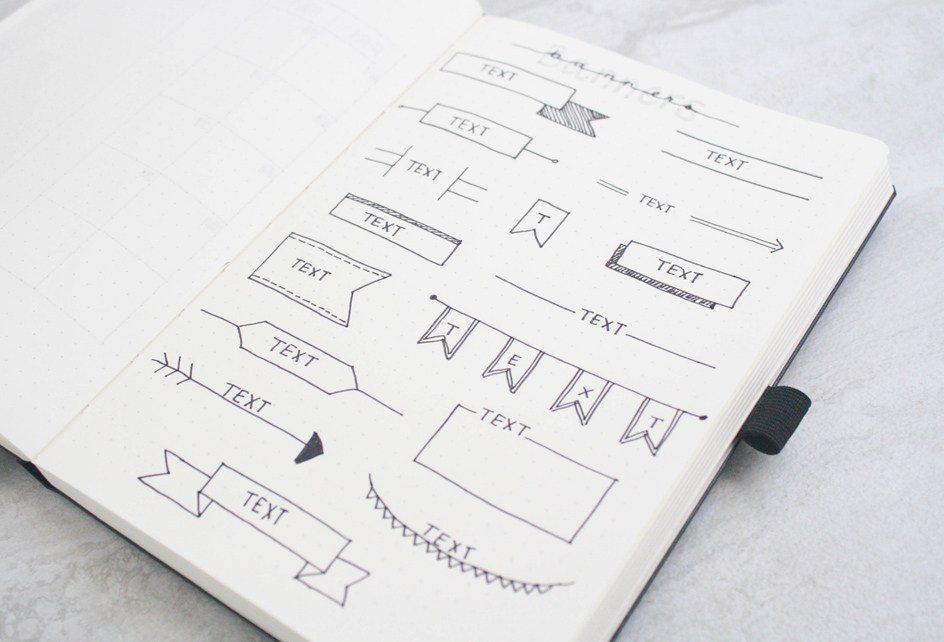 banners
TEXT
TEXT
TEXT
TEXT
TEXT
TEXT
TEXT
TEXT
TEXT
TEXT
T
TEXT
TEXT
T E X T
TEXT
TEXT